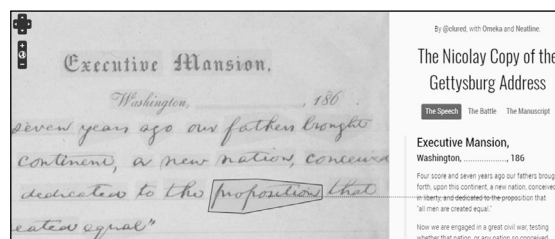 Executive Mansion,
Washington, , 186
seven years ago our fathers brought
continent, a new nation, conceived
dedicated to the proposition that
eated equal"
By @clured, with Omeka and Neatline.
The Nicolay Copy of the
Gettysburg Address
The Speech The Battle The Manuscript
Executive Mansion,
Washington, ...................., 186
Four score and seven years ago our fathers broug
forth, upon this continent, a new nation, conceived
in liberty, and dedicated to the proposition that
"all men are created equal."
Now we are engaged in a great civil war, testing
whether that nation, or any nation so conceived,